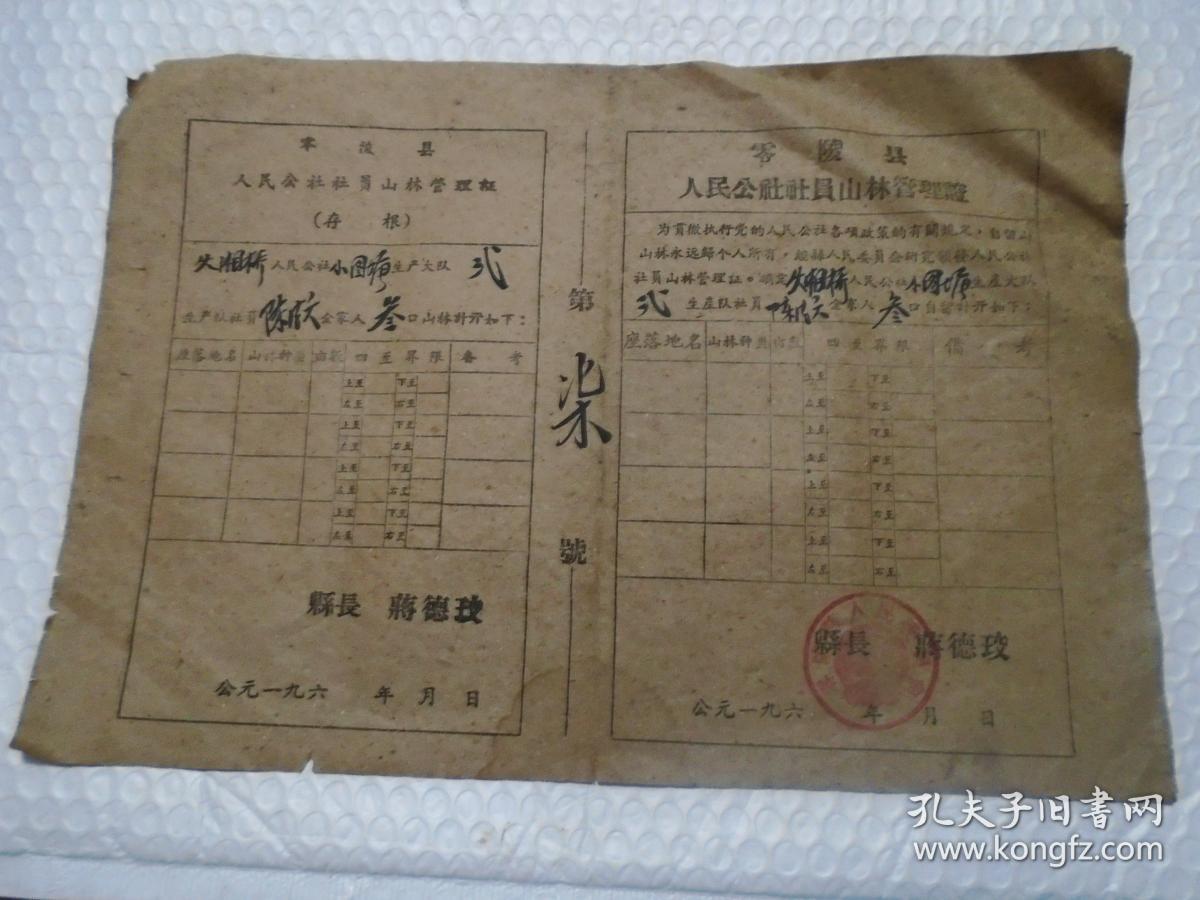 零陵县
人民公社社員山林管理証
（存根）
人民公社小圆塘生产大队 弍
生产队社員陈 全家人叁口山林計开如下：
座落地名 山林种类 亩数 四至界限 备考
上至 下至
左至 右至
上至 下至
左至 右至
上至 下至
左至 右至
上至 下至
左至 右至
縣長 蔣德玫
公元一九六 年 月 日
第
柒
號
零陵县
人民公社社員山林管理證
为貫徹执行党的人民公社各項政策的有関規定，自留山
山林永远歸个人所有，經縣人民委員会研究頒發人民公社
社員山林管理証。 人民公社小圆塘生産大队
弍 生産队社員陈 全家人 叁口自留計开如下：
座落地名 山林种类 亩数 四至界限 備考
上至 下至
左至 右至
上至 下至
左至 右至
上至 下至
左至 右至
上至 下至
左至 右至
縣長 蔣德玫
公元一九六 年 月 日
孔夫子旧书网
www.kongfz.com